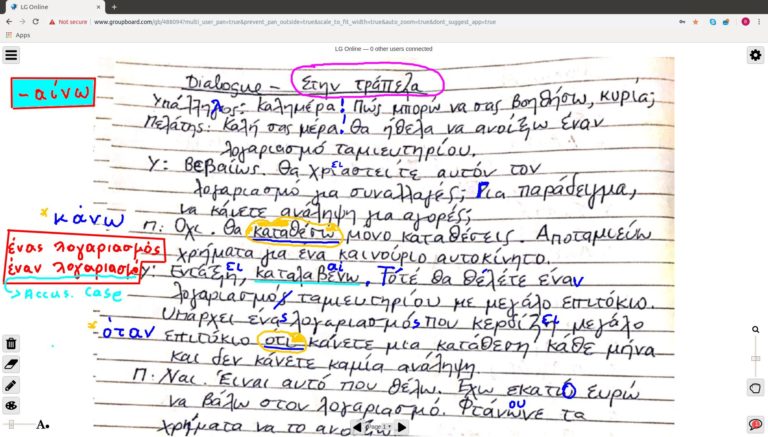 LG Online
Not secure | www.groupboard.com/gb/488094?multi_user_pan=true&prevent_pan_outside=true&scale_to_fit_width=true&auto_zoom=true&dont_suggest_app=true
Apps
LG Online — 0 other users connected
-αίνω
Dialogue - Στην τράπεζα
Υπάλληλος: Καλημέρα! Πώς μπορώ να σας βοηθήσω, κυρία;
Πελάτης: Καλή σας μέρα! Θα ήθελα να ανοίξω έναν
λογαριασμό ταμιευτηρίου.
Υ: Βεβαίως. Θα χρειαστείτε αυτόν τον
λογαριασμό για συναλλαγές; Για παράδειγμα,
να κάνετε ανάληψη για αγορές;
* κάνω
Π: Όχι. Θα καταθέσω μόνο καταθέσεις. Αποταμιεύω
χρήματα για ένα καινούριο αυτοκίνητο.
ένας λογαριασμός
έναν λογαριασμό
→ Accus. case
Υ: Εντάξει, καταλαβαίνω. Τότε θα θέλετε έναν
λογαριασμό ταμιευτηρίου με μεγάλο επιτόκιο.
Υπάρχει ένας λογαριασμός που κερδίζει μεγάλο
* όταν
επιτόκιο ότι κάνετε μια κατάθεση κάθε μήνα
και δεν κάνετε καμία ανάληψη.
Π: Ναι. Είναι αυτό που θέλω. Έχω εκατό ευρώ
να βάλω στον λογαριασμό. Φτάνουνε τα
χρήματα να το
A